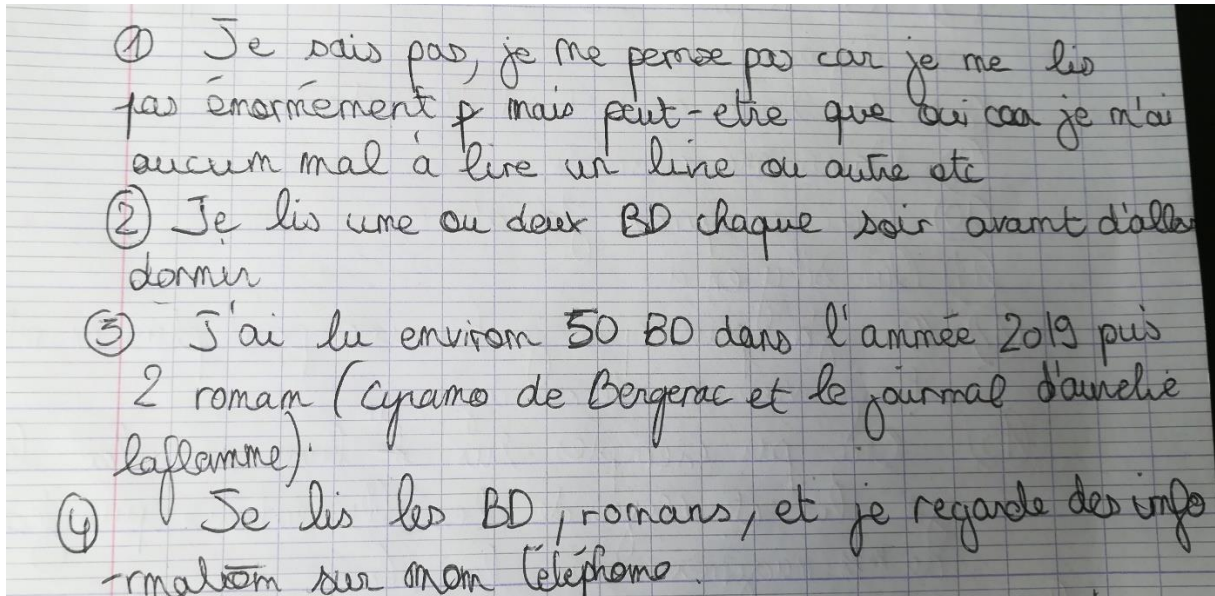 ① Je sais pas, je ne pense pas car je ne lis
pas énormément mais peut-etre que oui car je n'ai
aucun mal à lire un livre ou autre etc
② Je lis une ou deux BD chaque soir avant d'aller
dormir
③ J'ai lu environ 50 BD dans l'année 2019 puis
2 roman (Cyrano de Bergerac et le journal d'aurelie
laflamme).
④ Je lis les BD, romans, et je regarde des info
-rmation sur mon téléphone.